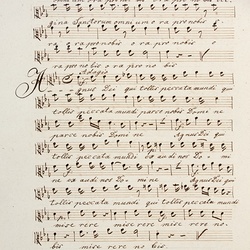 gina Sanctorum omnium o ra pro nobis
o ra pro nobis o ra pro nobis o
ra pro no bis o ra pro no bis
Adagio
Agnus Dei qui tollis peccata mundi qui
tollis peccata mundi parce nobis Do mi ne
parce nobis Domi ne Agnus Dei qui
tollis peccata mundi ex au di nos Do mi
ne ex audi nos Do mi ne Agnus Dei qui
tollis peccata mundi qui tollis peccata mundi
mise rere mise rere mise re re no
bis mise re re no bis.